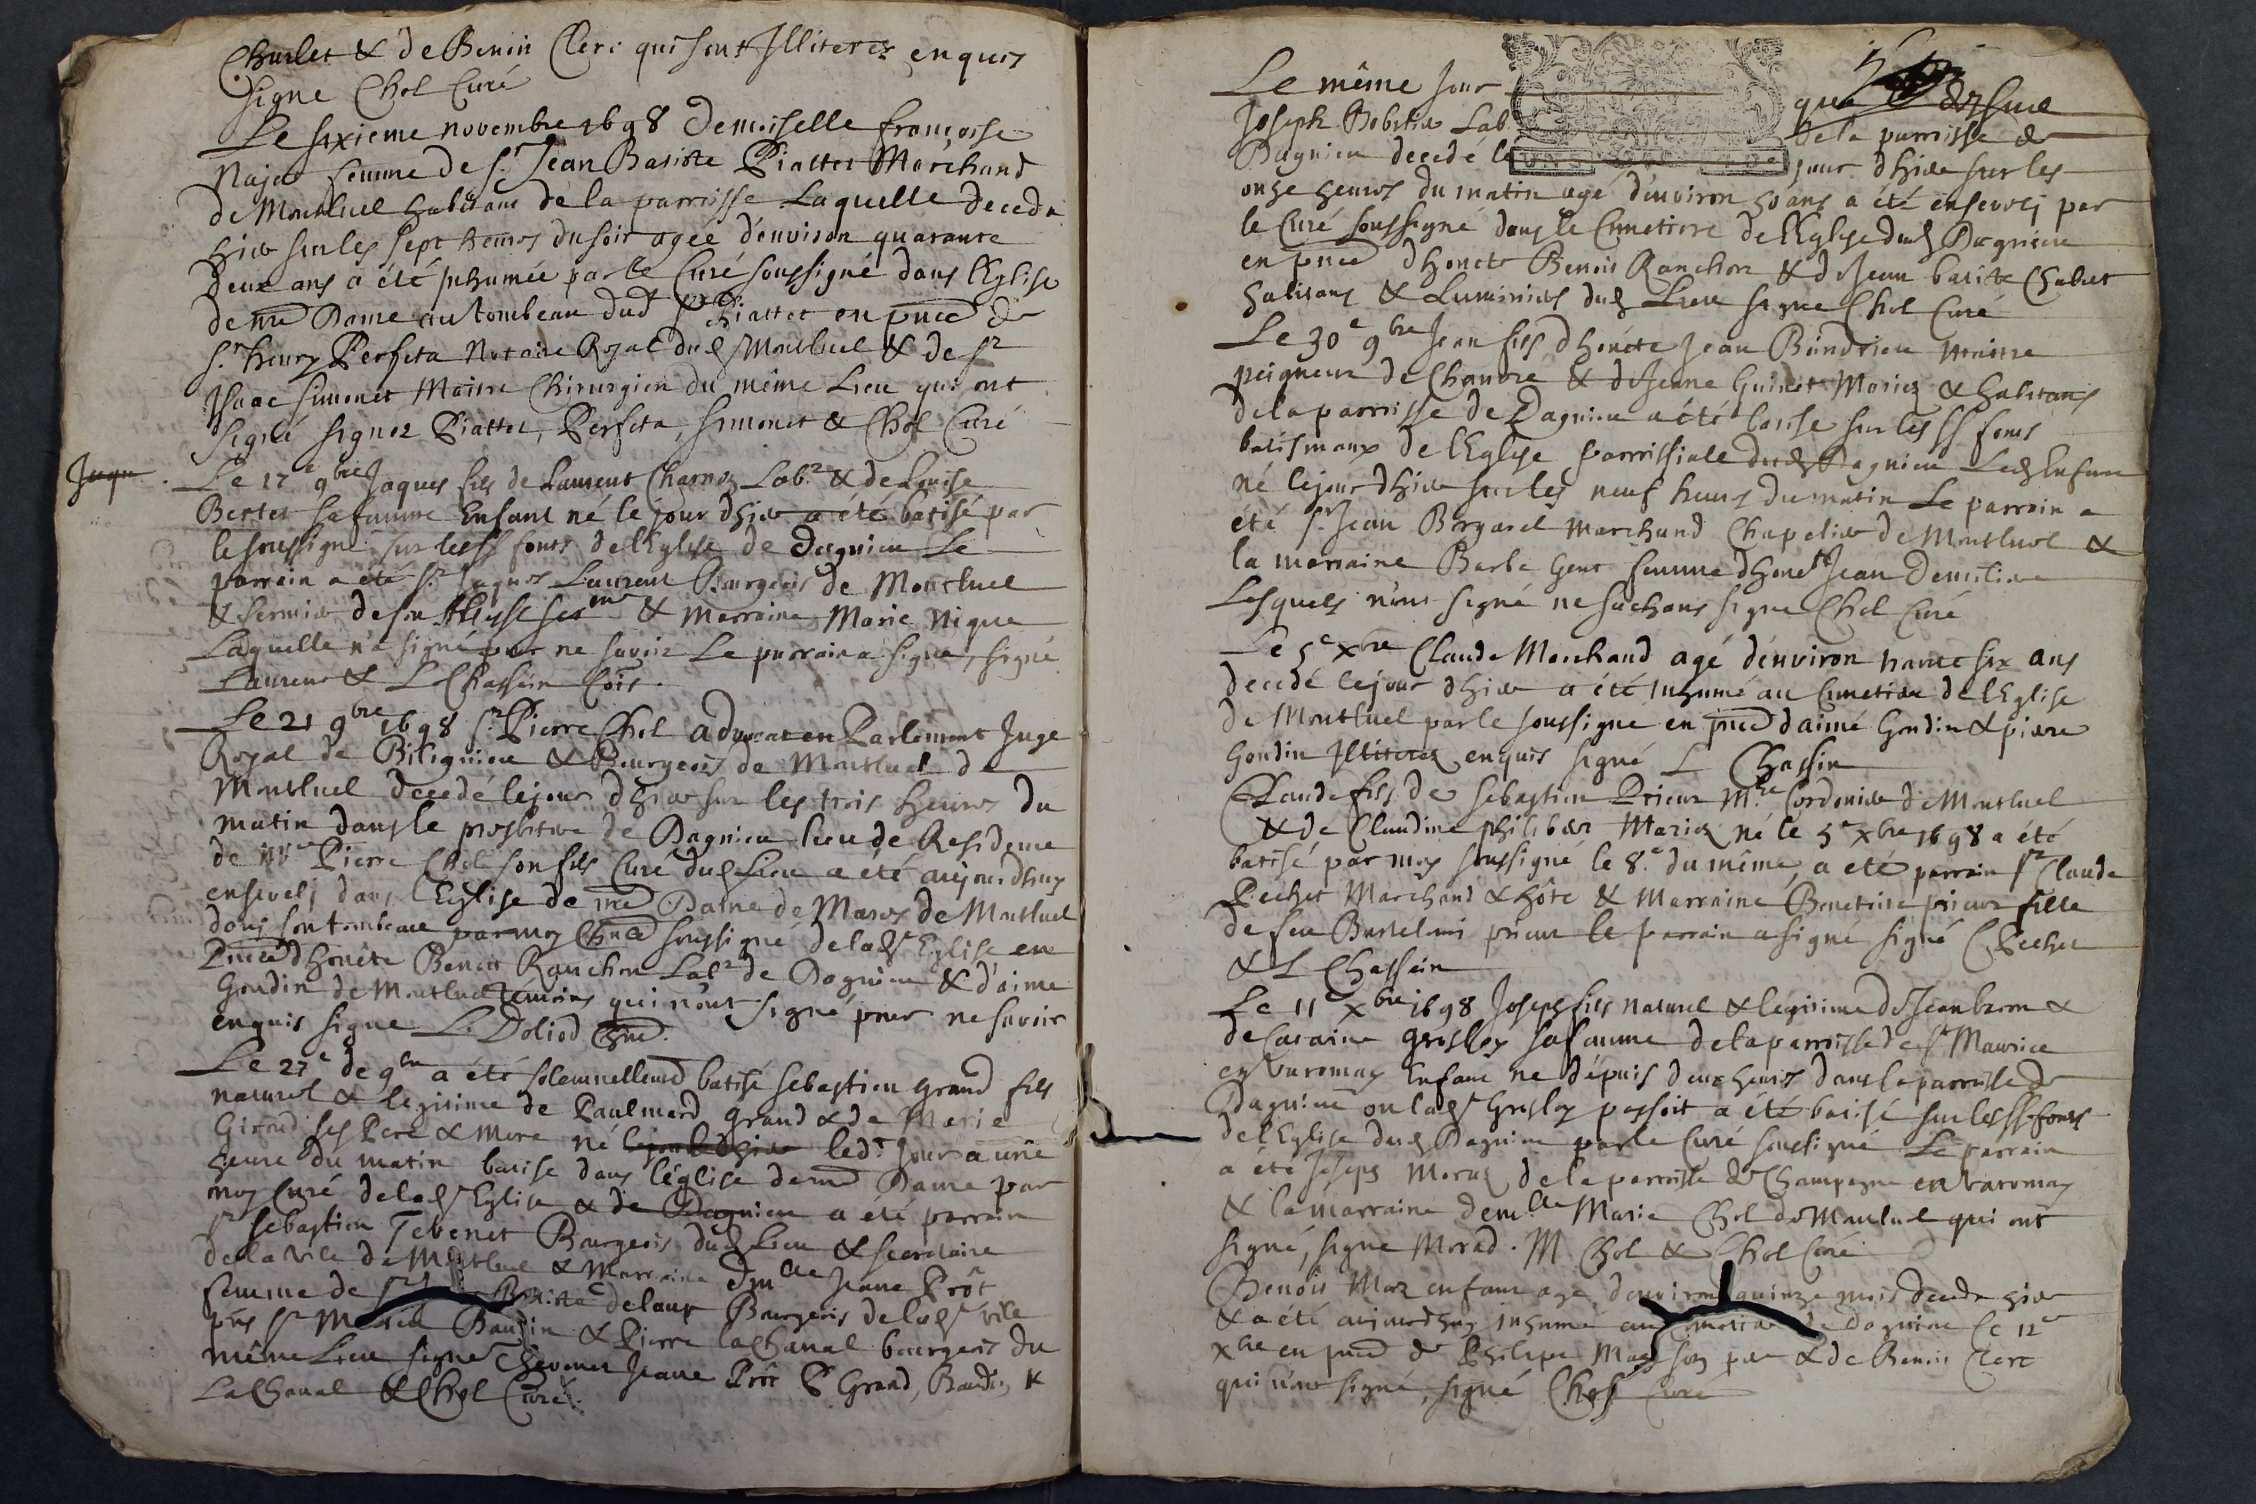 Chulet & de Benoit Clerc qui sont Illiteres enquis
signé Chol Curé
Le sixieme novembre 1698 Demoiselle françoise
Najat femme de Sr. Jean Batiste Piattet Marchand
de Montluel habitans de la parroisse Laquelle deceda
hier sur les sept heures du soir agée d'environ quarante
deux ans a été inhumée par le Curé soussigné dans l'Eglise
de nre Dame au tombeau dud Sr Piattet en pnce de
Sr. henry Perfeta Notaire Royal dud Montluel & de Sr
Isaac Simonet Maitre Chirurgien du même Lieu qui ont
signé signez Piattet, Perfeta, Simonet & Chol Curé
Jaque
Le 17e 9bre Jaques fils de Laurent Charnoz Labr & de Louise
Bertet sa famme Enfant né le jour d'hier a été batisé par
le soussigné sur les SS fonts de l'Eglise de Dagnieu Le
parrain a été Sr. Jaques Laurent Bourgeois de Montluel
& fermier de son Altesse serme & Marraine Marie Nique
Laquelle n'a signé pour ne savoir Le parrain a signé, signé
Laurent & L Chassein
Le 21 9bre 1698 Sr. Pierre Chol advocat en Parlement Juge
Royal de Bilignieu & Bourgeois de Montluel de
Montluel decedé le jour d'hier sur les trois heures du
matin dans le presbitere de Dagnieu lieu de Residence
de Mre Pierre Chol son fils Curé dud Lieu a été aujourdhuy
enseveli dans l'Eglise de nre Dame de Marez de Montluel
dans son tombeau par moy Chne soussigné de lade Eglise en
Pnce d'honête Benoit Ranchon Labr de Dagnieu & d'aimé
Gondin de Montluel témoins qui n'ont signé pour ne savoir
enquis signé L. Doliod Chne.
Le 27e de 9bre a été solemnellemt batisé sebastien grand fils
naturel & legitime de Paul mard grand & de Marie
Giroud ses Pere & Mere né le jour d'hier led. Jour a une
heure du matin batisé dans l'église de nre Dame par
moy Curé de lade Eglise & de Dagnieu a été parrain
Sr sebastien Tevenet Bourgeois dud Lieu & secretaire
de la vile de Montluel & Marraine Dmlle Jeane Prôt
femme de Sr Batiste delaux Bourgeois de lade vile
pns Sr Baudin & Pierre lachanal bourgeois du
même Lieu signé Thevenet Jeane Prôt P Grand, Baudin
LaChanal & Chol Curé.
Le même jour que dessus
Joseph Bobitier Lab de la parroisse de
Dagnieu decedé le jour d'hier sur les
onze heures du matin agé d'environ 50 ans a été enseveli par
le Curé soussigné dans le Cimetiere de l'Eglise dud Dagnieu
en pnce d'honête Benoit Ranchon & de Jean batiste Chulet
habitans & Luminiers dud Lieu signé Chol Curé
Le 30e 9bre Jean fils d'honête Jean Bundrieu maitre
peigneur de Chanvre & de Jeane Guinet Mariez & habitans
de la parroisse de Dagnieu a été batisé sur les SS fonts
batismaux de l'Eglise parroissiale dud Dagnieu Led Enfant
né le jour d'hier sur les neuf heures du matin Le parrain a
été Sr. Jean Bergarel marchand Chapelier de Montluel &
la marraine Barbe Gent femme d'honet Jean
Lesquels n'ont signé ne sachans signé Chol Curé
Le 5e Xbre Claude Marchand agé d'environ trante six ans
decedé le jour d'hier a été Inhumé au Cimetiere de l'Eglise
de Montluel par le soussigné en pnce d'aimé Gondin & piere
Gondin Illiteres enquis signé L Chassin
Claude fils de Sebastien Prieur Mre Cordonier de Montluel
& de Claudine philiber Mariez né le 5e Xbre 1698 a été
batisé par moy soussigné le 8e du même, a été parrain Sr Claude
Pechet Marchand & hôte & Marraine Benetoite prieur fille
de feu Bartelmi prieur le parrain a signé signé Chechet
& L Chassein
Le 11e Xbre 1698 Joseph fils naturel & legitime de Jean baron &
de Cataine Grosley sa famme de la parroisse de St Maurice
en Varomay Enfant né dépuis deux heures dans la parroisse de
Dagnieu ou lade Grosley passoit a été batisé sur les SS. fonts
de l'Eglise dud Dagnieu par le Curé soussigné Le parrain
a été Joseph Morad de la parroisse de Champagne en Varomay
& la marraine demlle Marie Chol de Montluel qui ont
signé, signé Morad. M Chol & Chol Curé
Benoit Maz enfant agé d'environ quinze mois deceda hier
& a été aujourdhuy inhumé au Cimetiere de Dagnieu le 12e
Xbre en pnce de Philipe Maz son pere & de Benoit Clerc
qui n'ont signé, signé Chol Curé